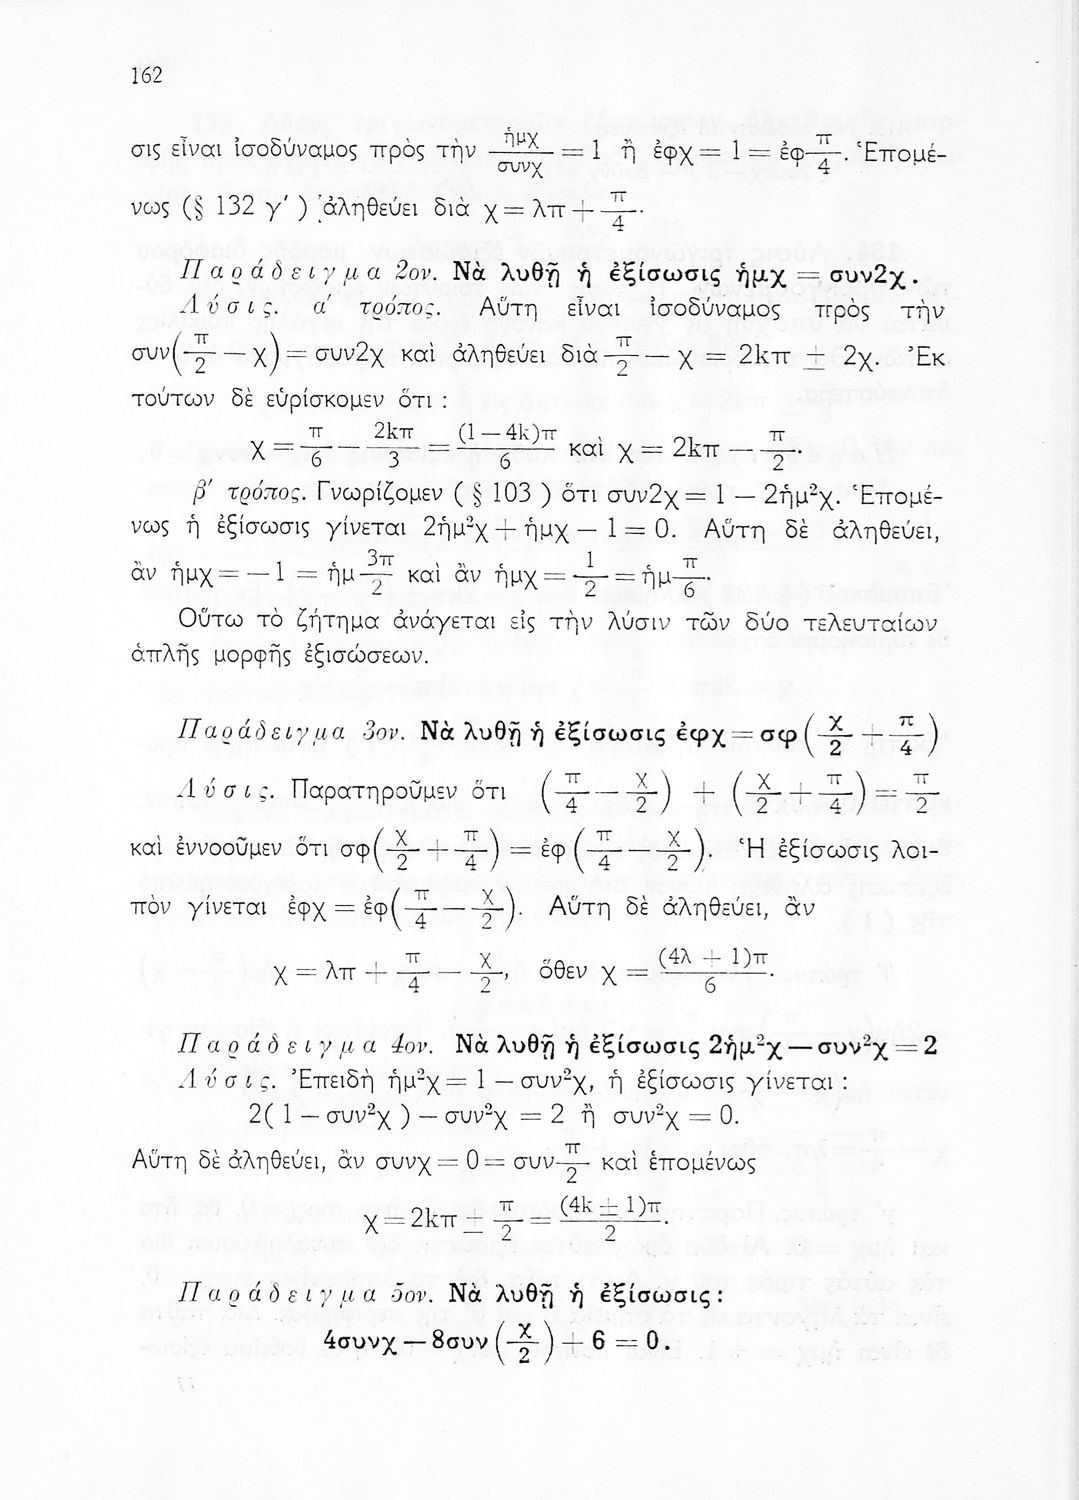 162
σις εἶναι ἰσοδύναμος πρὸς τὴν ἡμχ/συνχ = 1 ἢ ἐφχ = 1 = ἐφ π/4. Ἑπομέ-
νως (§ 132 γ′ ) ἀληθεύει διὰ χ = λπ + π/4.
Παράδειγμα 2ον. Νὰ λυθῇ ἡ ἐξίσωσις ἡμχ = συν2χ.
Λύσις. α′ τρόπος. Αὕτη εἶναι ἰσοδύναμος πρὸς τὴν
συν(π/2 — χ) = συν2χ καὶ ἀληθεύει διὰ π/2 — χ = 2kπ ± 2χ. Ἐκ
τούτων δὲ εὑρίσκομεν ὅτι :
χ = π/6 — 2kπ/3 = (1 — 4k)π/6 καὶ χ = 2kπ — π/2.
β′ τρόπος. Γνωρίζομεν ( § 103 ) ὅτι συν2χ = 1 — 2ἡμ²χ. Ἑπομέ-
νως ἡ ἐξίσωσις γίνεται 2ἡμ²χ + ἡμχ — 1 = 0. Αὕτη δὲ ἀληθεύει,
ἂν ἡμχ = — 1 = ἡμ 3π/2 καὶ ἂν ἡμχ = 1/2 = ἡμ π/6.
Οὕτω τὸ ζήτημα ἀνάγεται εἰς τὴν λύσιν τῶν δύο τελευταίων
ἁπλῆς μορφῆς ἐξισώσεων.
Παράδειγμα 3ον. Νὰ λυθῇ ἡ ἐξίσωσις ἐφχ = σφ (χ/2 + π/4)
Λύσις. Παρατηροῦμεν ὅτι (π/4 — χ/2) + (χ/2 + π/4) = π/2
καὶ ἐννοοῦμεν ὅτι σφ(χ/2 + π/4) = ἐφ (π/4 — χ/2). Ἡ ἐξίσωσις λοι-
πὸν γίνεται ἐφχ = ἐφ(π/4 — χ/2). Αὕτη δὲ ἀληθεύει, ἂν
χ = λπ + π/4 — χ/2, ὅθεν χ = (4λ + 1)π/6.
Παράδειγμα 4ον. Νὰ λυθῇ ἡ ἐξίσωσις 2ἡμ²χ — συν²χ = 2
Λύσις. Ἐπειδὴ ἡμ²χ = 1 — συν²χ, ἡ ἐξίσωσις γίνεται :
2( 1 — συν²χ ) — συν²χ = 2 ἢ συν²χ = 0.
Αὕτη δὲ ἀληθεύει, ἂν συνχ = 0 = συν π/2 καὶ ἑπομένως
χ = 2kπ ± π/2 = (4k ± 1)π/2.
Παράδειγμα 5ον. Νὰ λυθῇ ἡ ἐξίσωσις:
4συνχ — 8συν (χ/2) + 6 = 0.